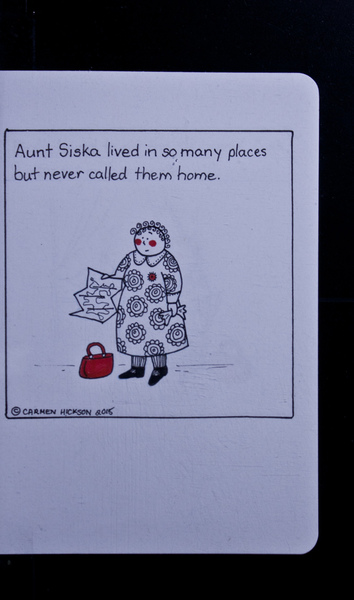 Aunt Siska lived in so many places
but never called them home.
© CARMEN HICKSON 2015